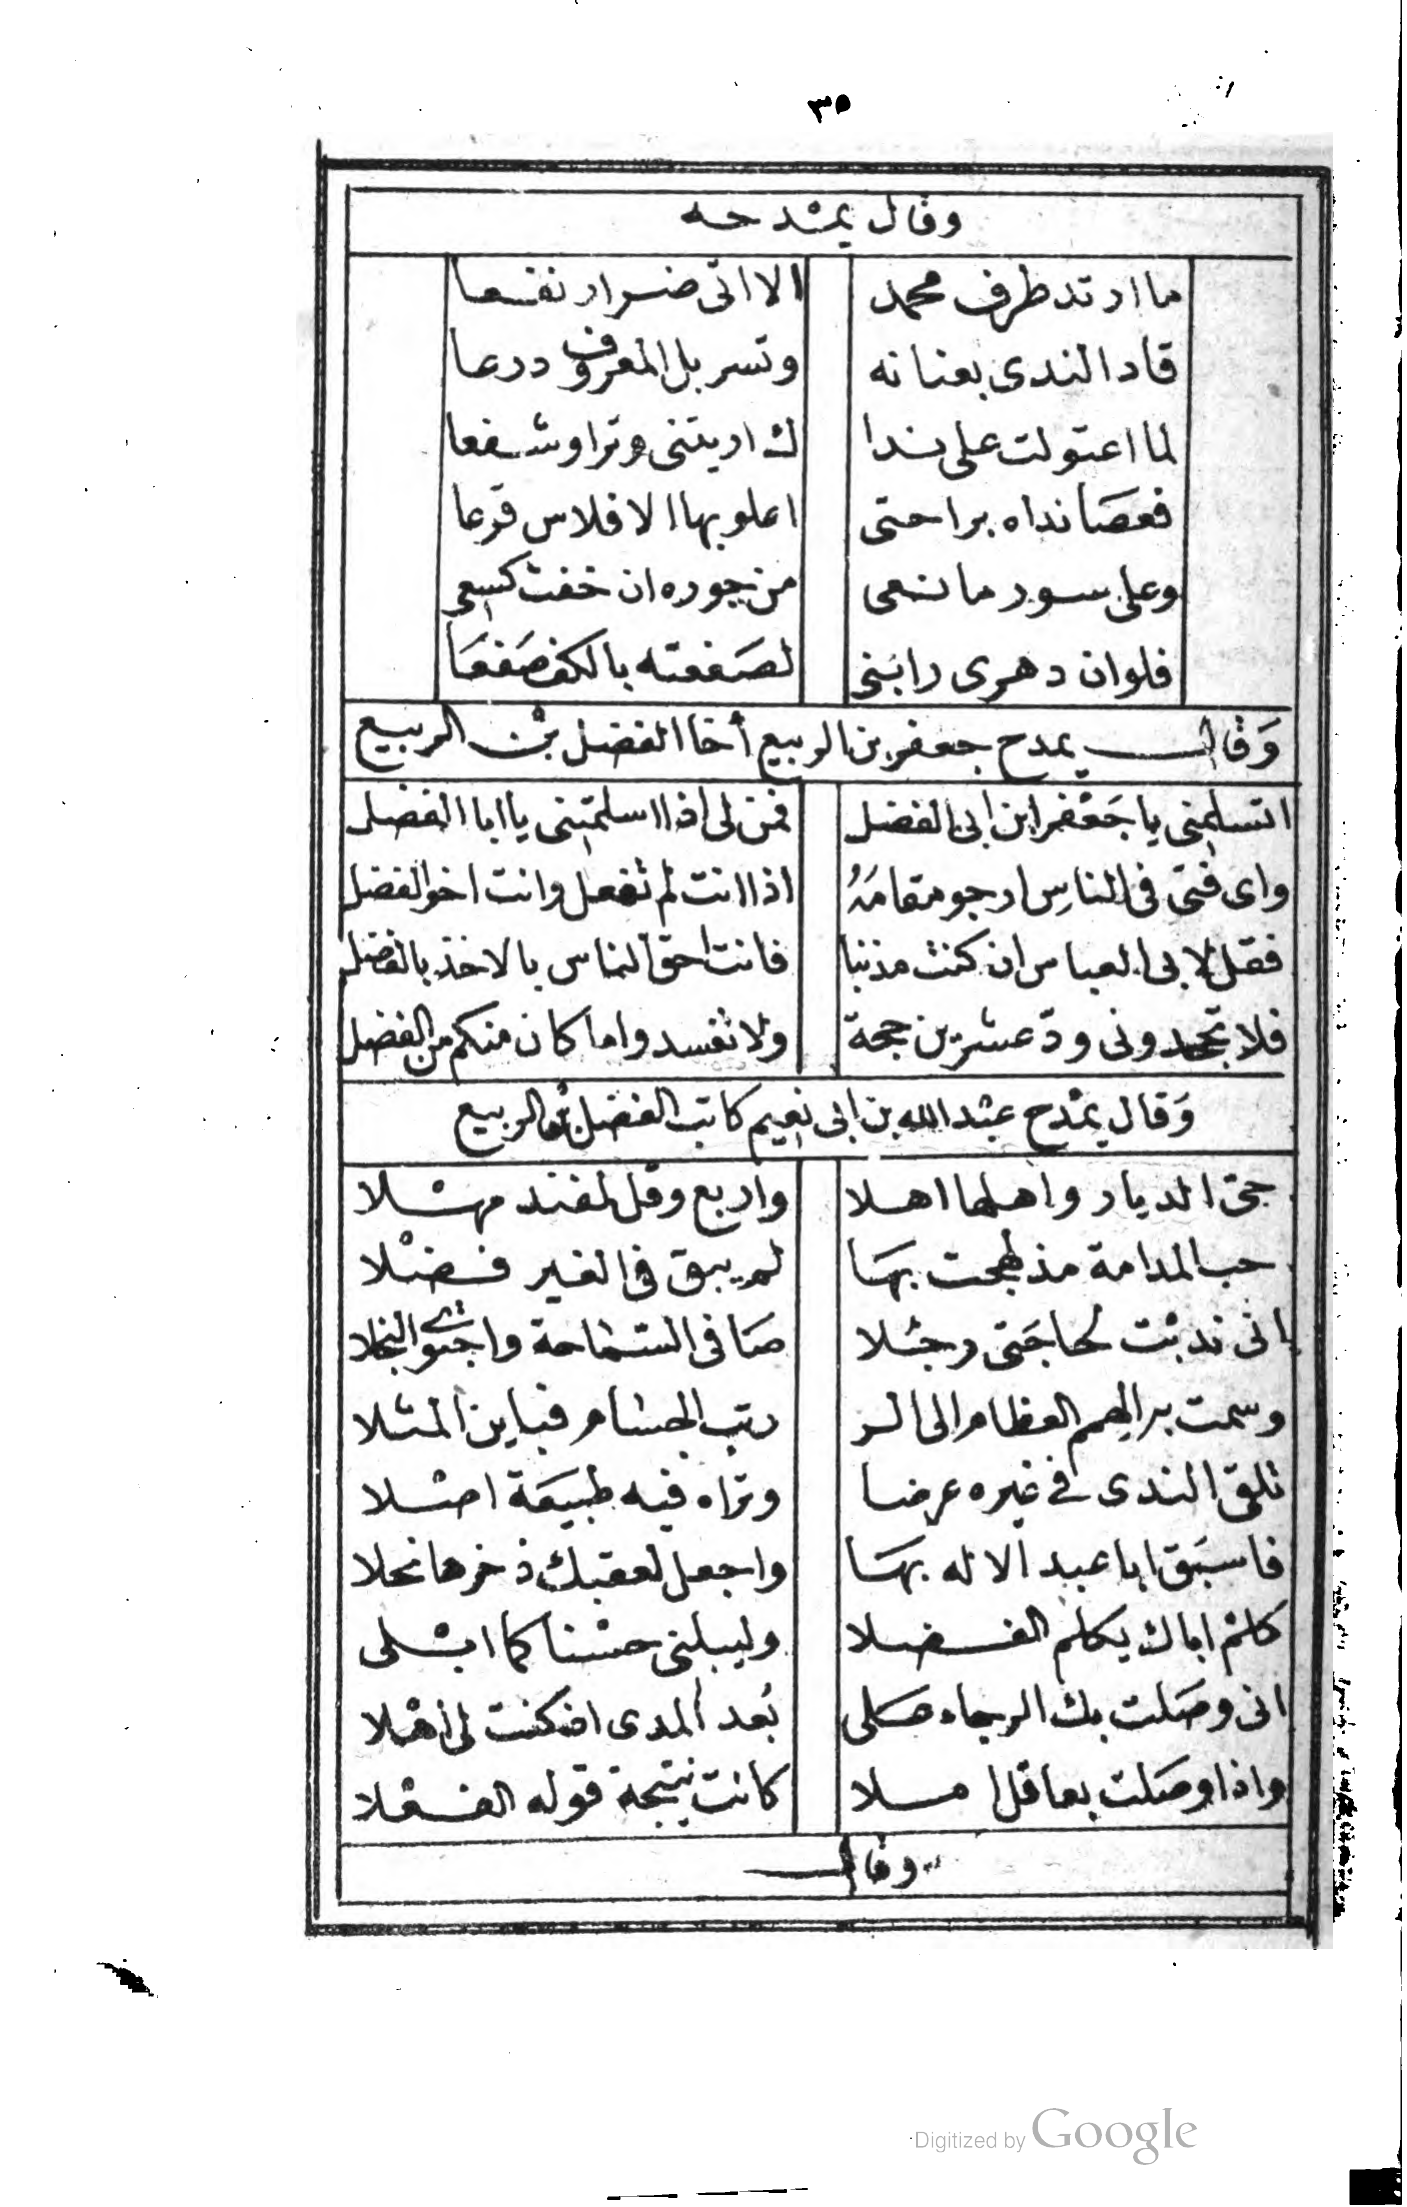 ٣٥
وقال يمدحه
ما ارتد طرف محمد الا اتى ضرا ونفعا
قاد الندى بعنانه وتسربل المعروف درعا
لما اعتولت على ندا ك اريتنى وترا وشفعا
فعصا نداه براحتى اعلو بها الافلاس قرعا
وعلى سور مانعى من جوره ان خفت كسعى
فلو ان دهرى رابنى لصفعته بالكف صفعا
وقال يمدح جعفر بن الربيع أخا الفضل بن الربيع
اتسلمنى يا جعفر ابن ابى الفضل فمن لى اذا اسلمتنى يا ابا الفضل
واى فتى فى الناس ارجو مقامه اذا انت لم تفعل وانت اخو الفضل
فقل لابى العباس ان كنت مذنبا فانت احق الناس بالاخذ بالفضل
فلا تجحدونى ود عشرين حجة ولا تفسدوا ما كان منكم من الفضل
وقال يمدح عبد الله بن ابى نعيم كاتب الفضل بن الربيع
حى الديار واهلها اهلا واربع وقل لمفند مهلا
حب المدامة مذ لهجت بها لم يبق فى الغير فضلا
انى ندبت لحاجتى رجلا صافى السماحة واجتوى البخلا
وسمت به الهمم العظام الى الر رتب الجسام فباين المثلا
تلقى الندى فى غيره عرضا وتراه فيه طبيعة اصلا
فاسبق ابا عبد الاله بها واجعل لعقبك ذخرها نحلا
كلم اباك يكلم الفضلا وليبلنى حسنا كما ابلى
انى وصلت بك الرجاء على بعد المدى اذ كنت لى اهلا
واذا وصلت بعاقل املا كانت نتيجة قوله الفعلا
وقال
Digitized by Google